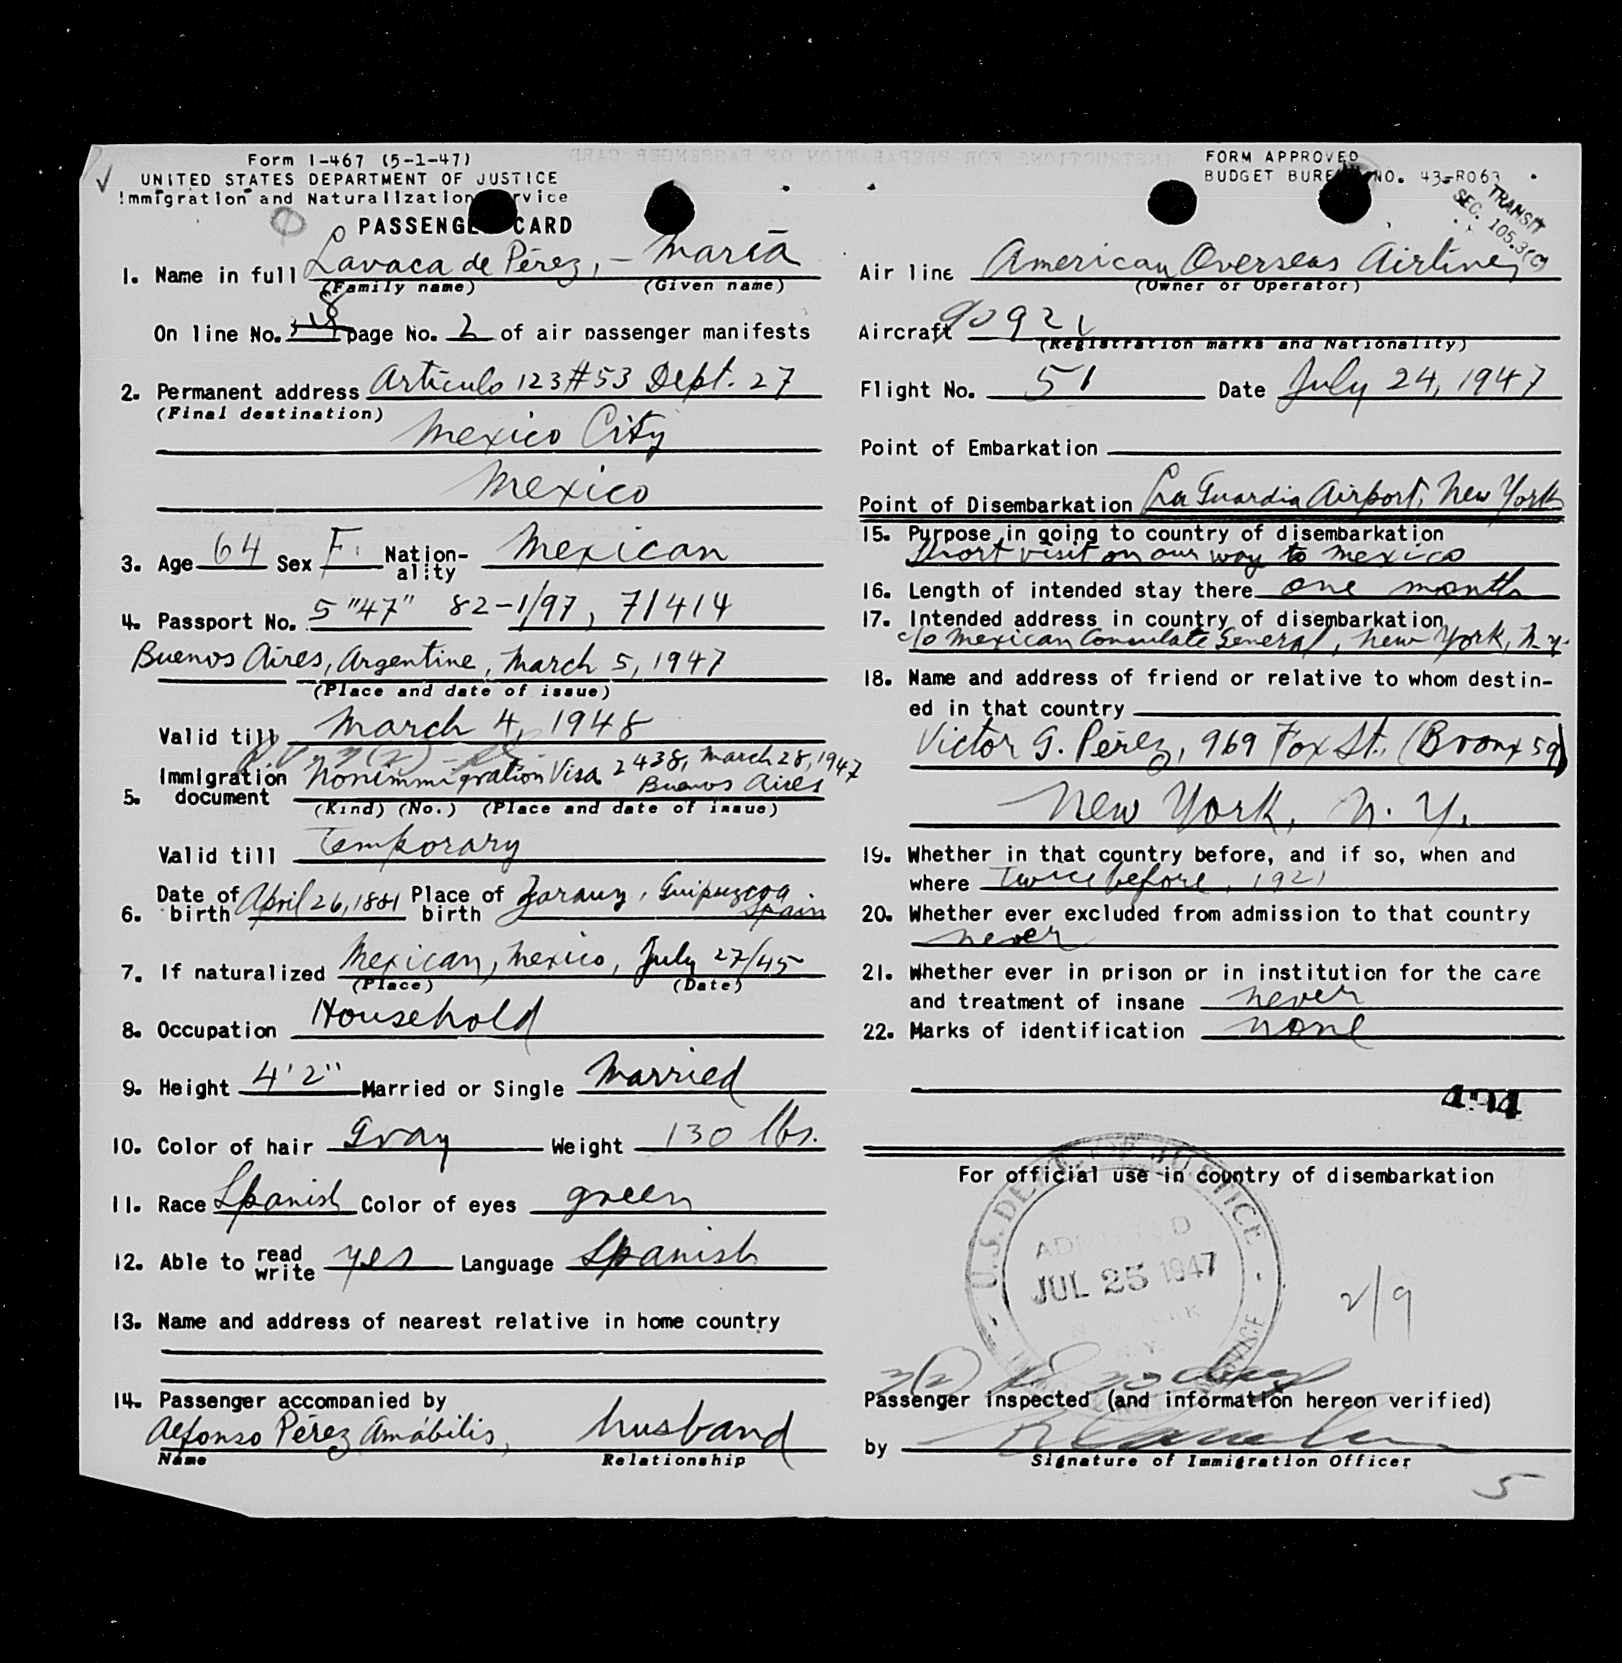 Form I-467 (5-1-47)
UNITED STATES DEPARTMENT OF JUSTICE
Immigration and Naturalization Service
PASSENGER CARD
1. Name in full Lavaca de Pérez, - María
(Family name) (Given name)
On line No. 8 page No. 2 of air passenger manifests
2. Permanent address Artículo 123 #53 Dept. 27
(Final destination)
Mexico City
Mexico
3. Age 64 Sex F. Nation-ality Mexican
4. Passport No. 5 "47" 82-1/97, 71414
Buenos Aires, Argentine, March 5, 1947
(Place and date of issue)
Valid till March 4, 1948
5. Immigration document Nonimmigration Visa 2438, March 28, 1947
Buenos Aires
(Kind) (No.) (Place and date of issue)
Valid till Temporary
6. Date of birth April 26, 1881 Place of birth Zarauz, Guipuzcoa
Spain
7. If naturalized Mexican, Mexico, July 27/45
(Place) (Date)
8. Occupation Household
9. Height 4'2" Married or Single Married
10. Color of hair Gray Weight 130 lbs.
11. Race Spanish Color of eyes green
12. Able to read write yes Language Spanish
13. Name and address of nearest relative in home country
14. Passenger accompanied by
Alfonso Pérez Amábilis, husband
Name Relationship
FORM APPROVED
BUDGET BUREAU NO. 43-R063
TRANSIT
SEC. 105.3(c)
Air line American Overseas Airlines
(Owner or Operator)
Aircraft 90921
(Registration marks and Nationality)
Flight No. 51 Date July 24, 1947
Point of Embarkation
Point of Disembarkation La Guardia Airport, New York
15. Purpose in going to country of disembarkation
Short visit on our way to Mexico
16. Length of intended stay there one month
17. Intended address in country of disembarkation
c/o Mexican Consulate General, New York, N.Y.
18. Name and address of friend or relative to whom destin-
ed in that country
Victor G. Pérez, 969 Fox St. (Bronx 59)
New York, N.Y.
19. Whether in that country before, and if so, when and
where Twice before, 1921
20. Whether ever excluded from admission to that country
never
21. Whether ever in prison or in institution for the care
and treatment of insane never
22. Marks of identification none
494
For official use in country of disembarkation
U.S. DEPT. OF JUSTICE
ADMITTED
JUL 25 1947
2/9
Passenger inspected (and information hereon verified)
by
Signature of Immigration Officer
5